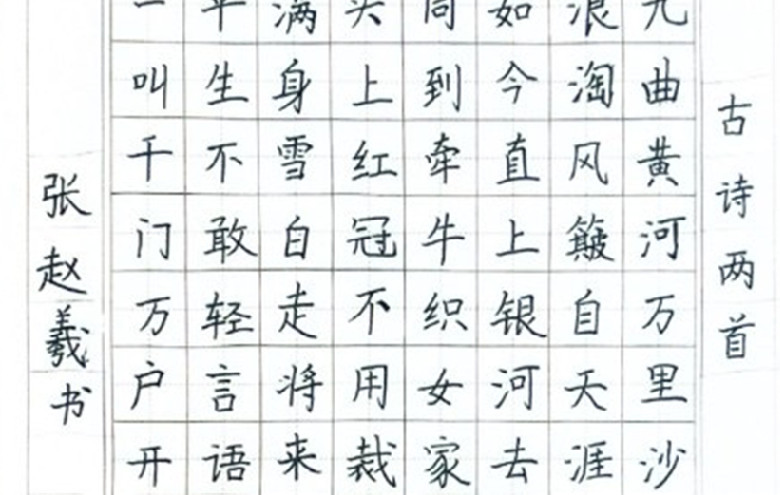 古诗两首
九曲黄河万里沙
浪淘风簸自天涯
如今直上银河去
同到牵牛织女家
头上红冠不用裁
满身雪白走将来
平生不敢轻言语
一叫千门万户开
张赵羲书